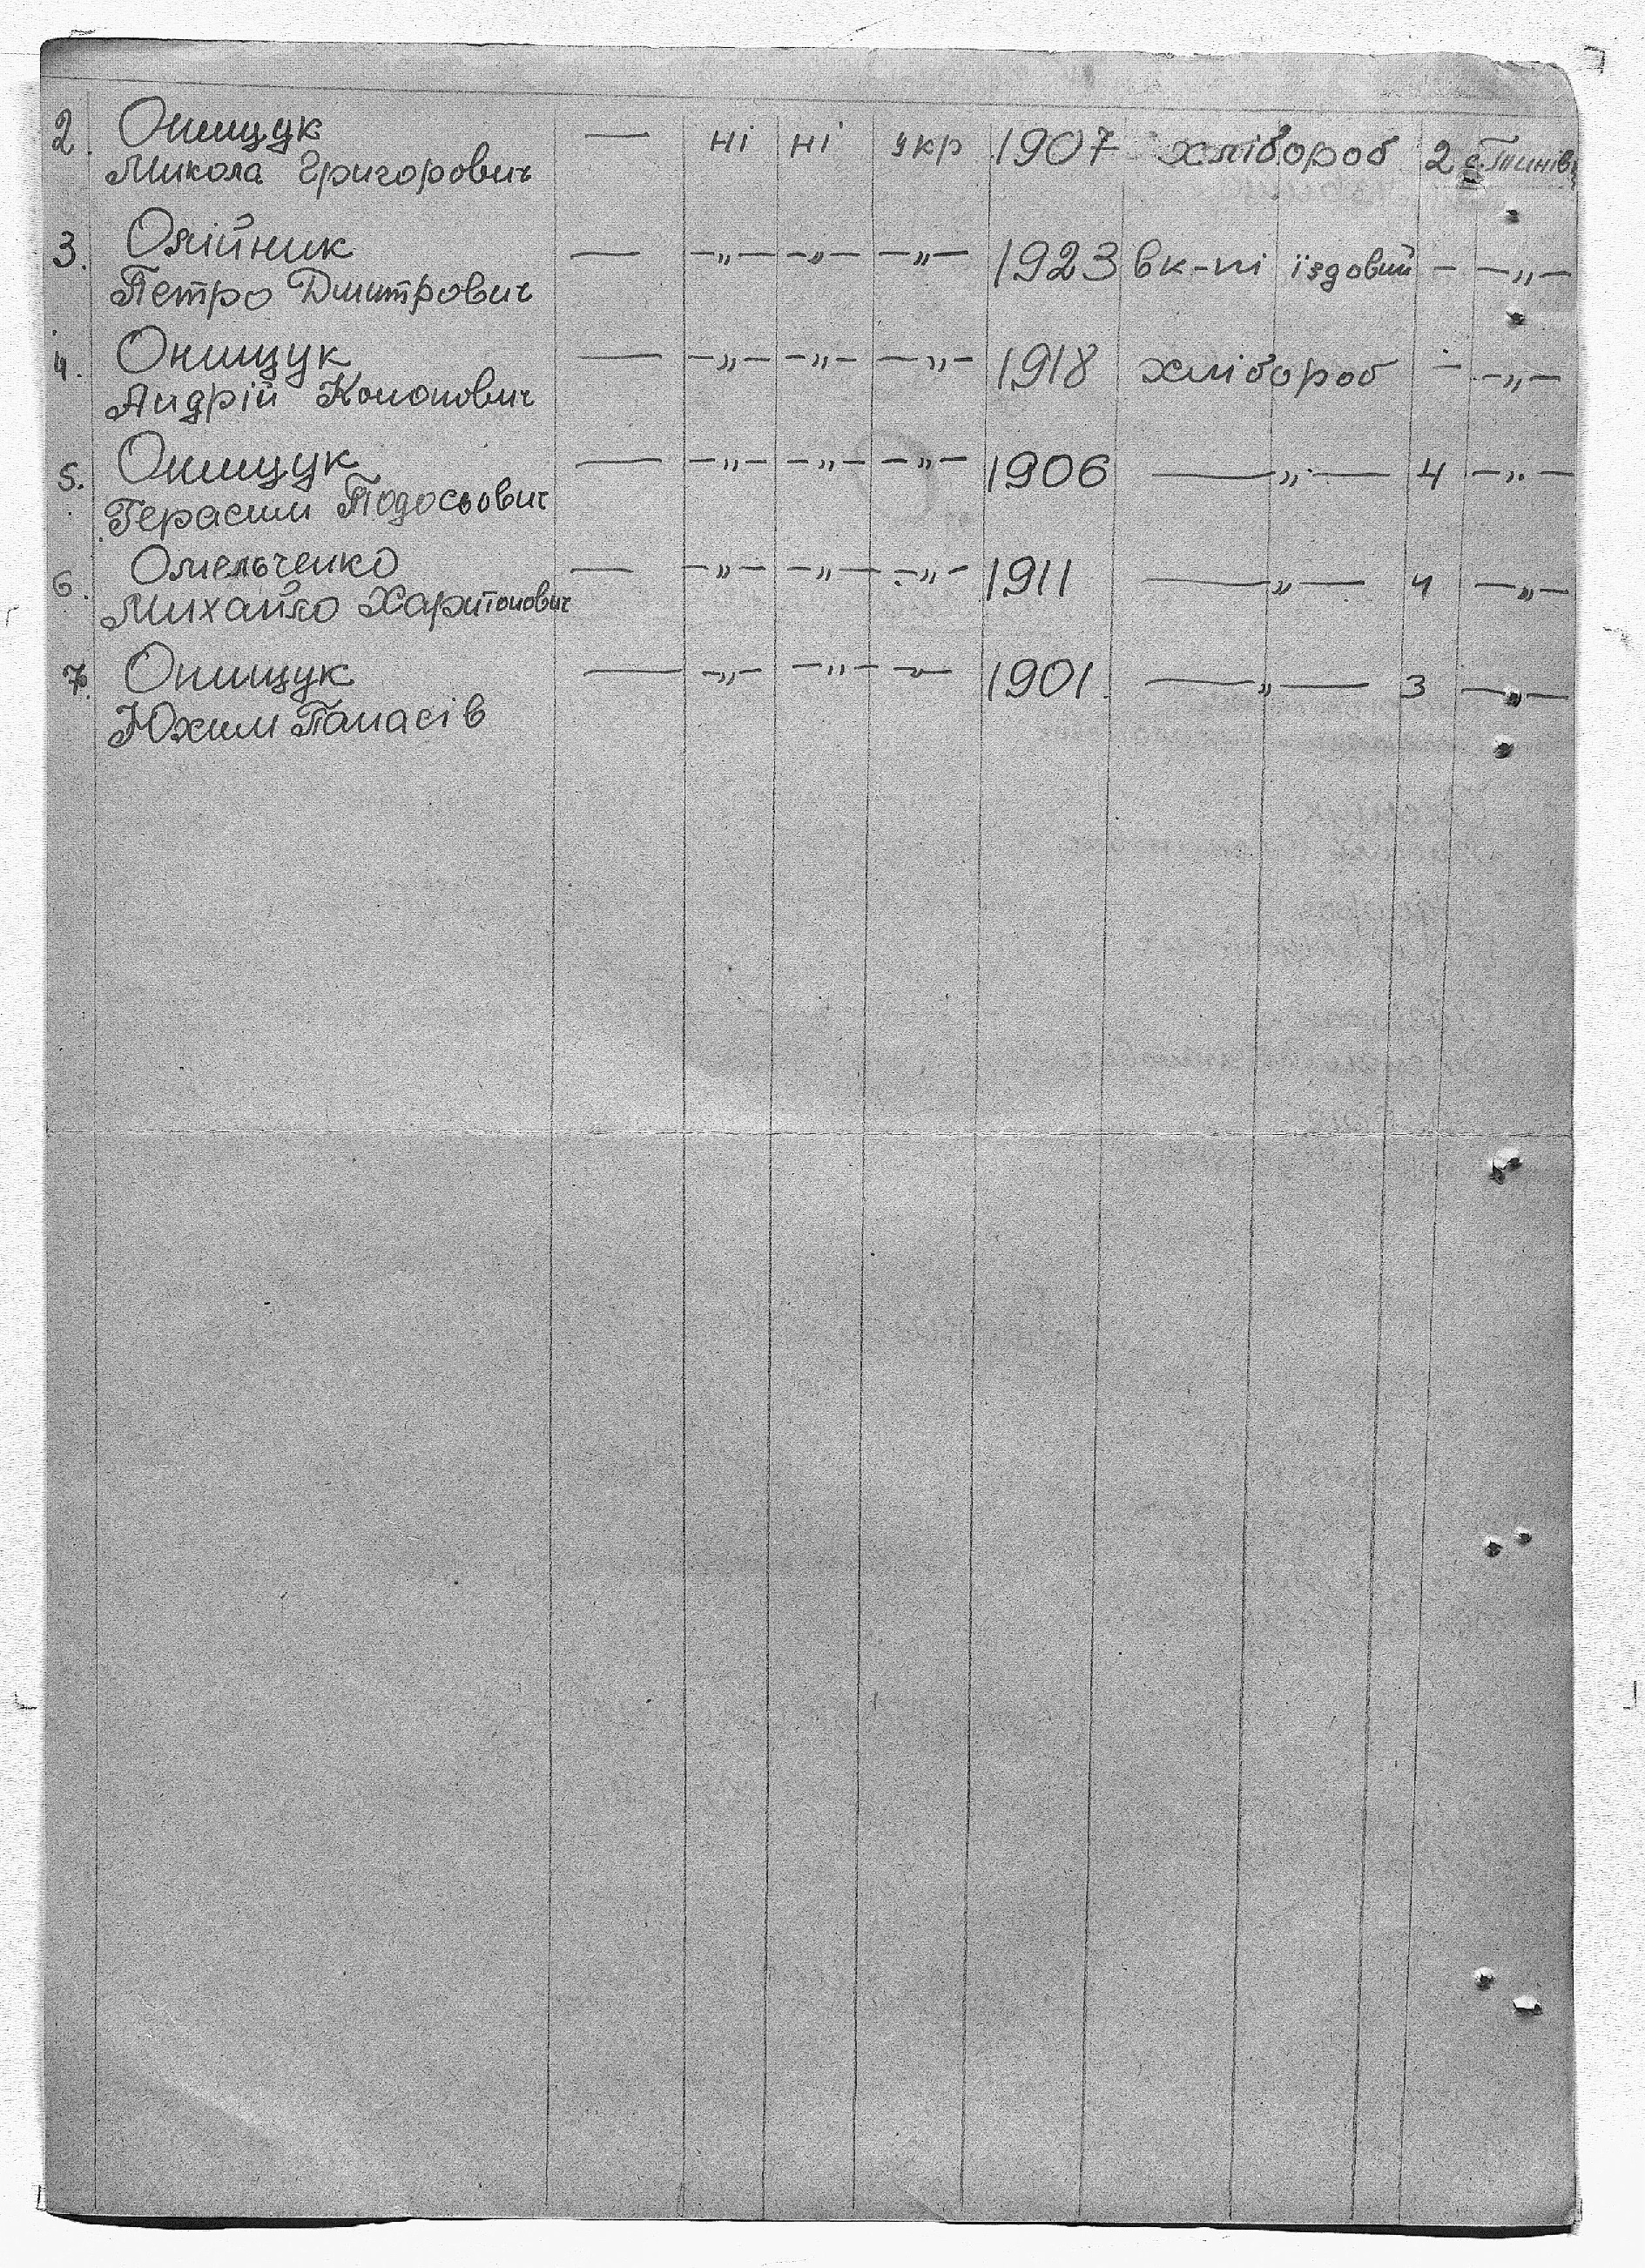 2. Онищук — ні ні укр 1907 хлібороб 2 с. Тинів
Микола Григорович
3. Олійник — —„— —„— —„— 1923 вк-пі їздовий — —„—
Петро Дмитрович
4. Онищук — —„— —„— —„— 1918 хлібороб — —„—
Андрій Кононович
5. Онищук — —„— —„— —„— 1906 —„— 4 —„—
Герасим Тодосьович
6. Омельченко — —„— —„— —„— 1911 —„— 4 —„—
Михайло Харитонович
7. Онищук — —„— —„— —„— 1901 —„— 3 —„—
Юхим Панасів